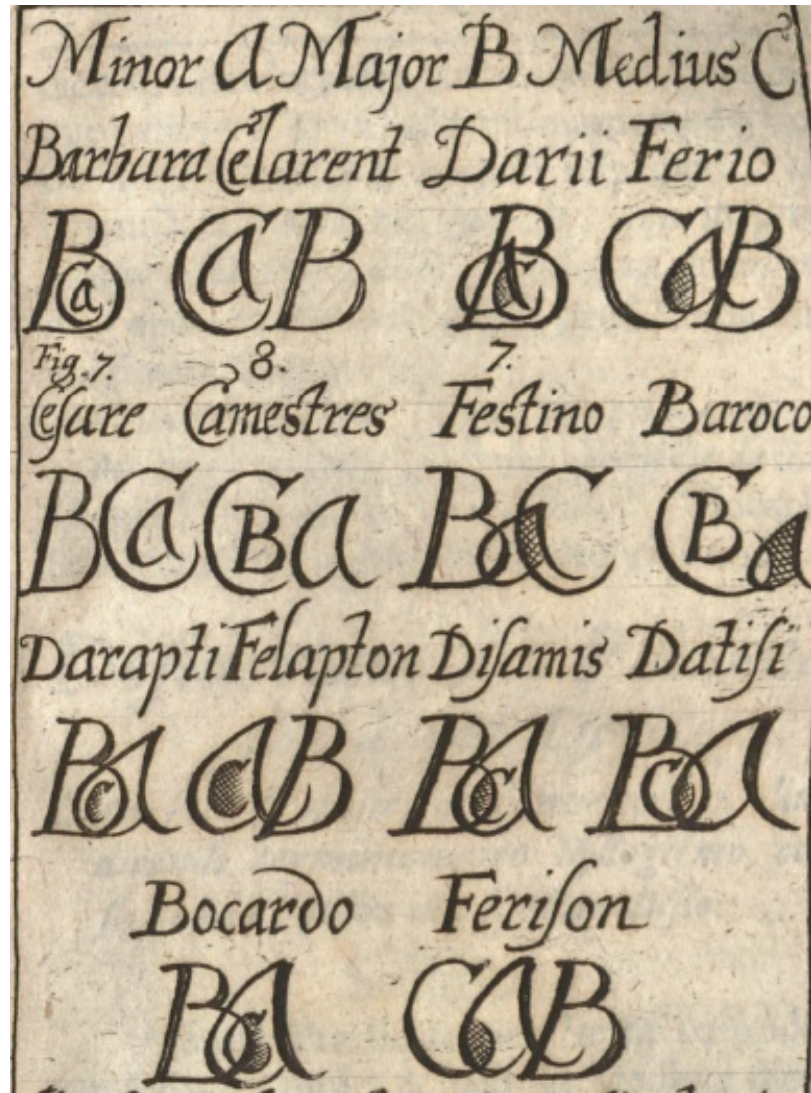 Minor A Major B Medius C
Barbara Celarent Darii Ferio
B C a C a B A B C C a B
Fig. 7. 8. 7.
Cesare Camestres Festino Baroco
B C a C B a B a C C B a
Darapti Felapton Disamis Datisi
B C a C a B B C a B C a
Bocardo Ferison
B C a C a B